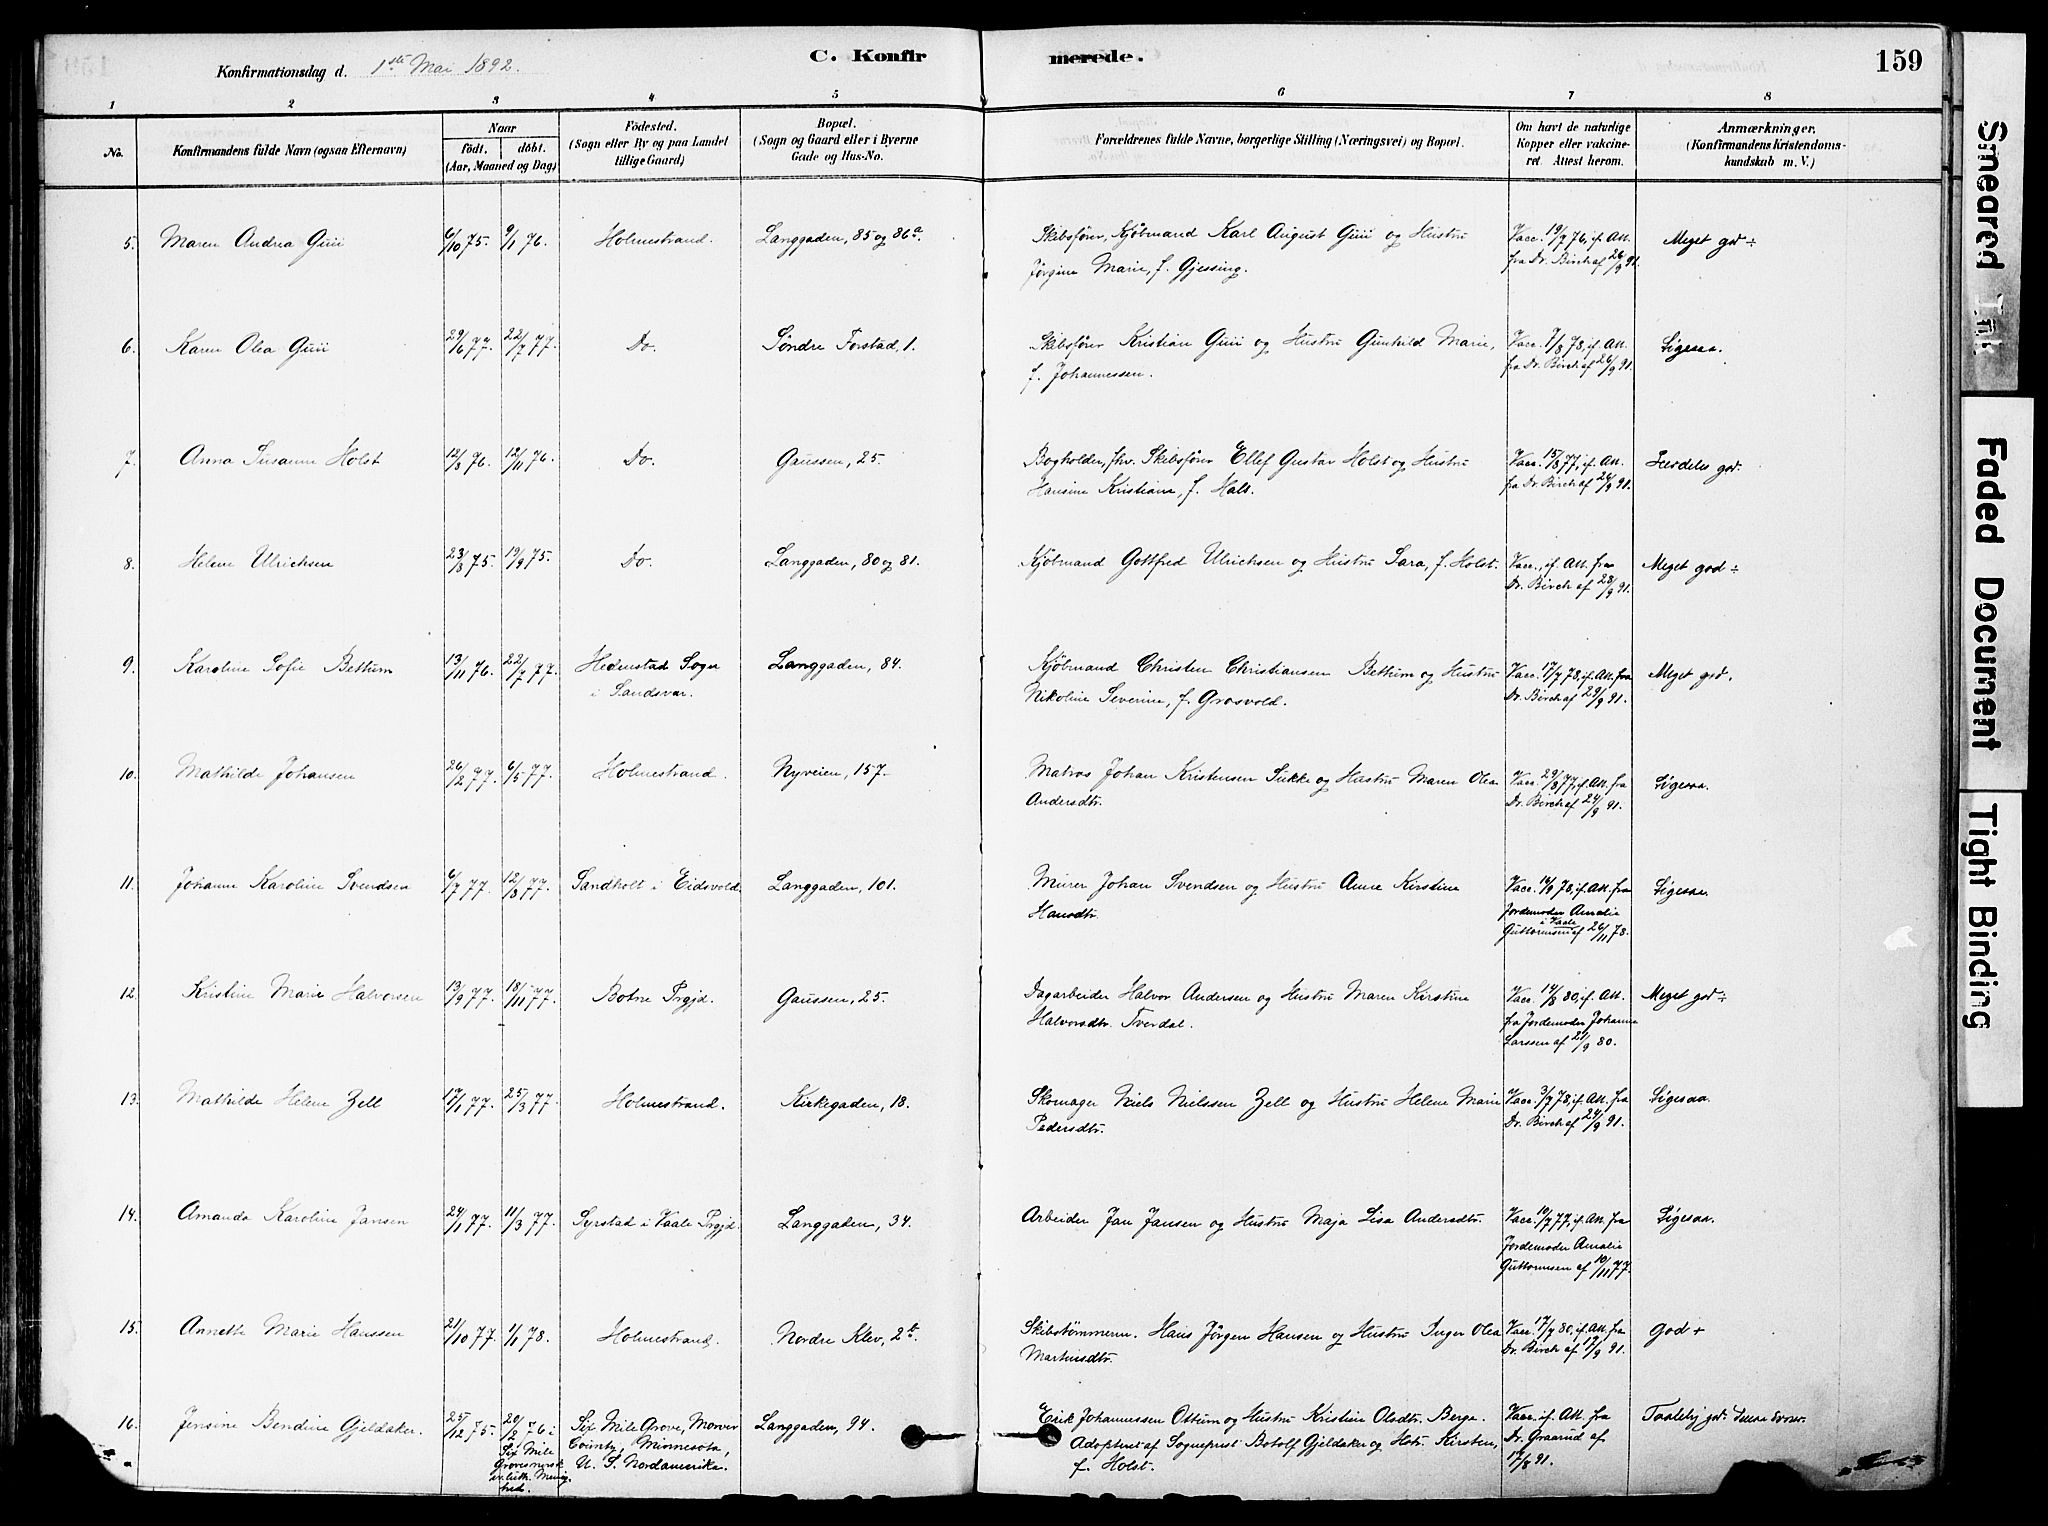 C. Konfir
merede.
159
Konfirmationsdag d. 1ste Mai 1892.
1 2 3 4 5 6 7 8
No.
Konfirmandens fulde Navn (ogsaa Efternavn)
Naar
født. døbt.
(Aar, Maaned og Dag)
Fødested.
(Sogn eller By og paa Landet
tillige Gaard)
Bopæl.
(Sogn og Gaard eller i Byerne
Gade og Hus-No.
Forældrenes fulde Navne, borgerlige Stilling (Næringsvei) og Bopæl.
Om havt de naturlige
Kopper eller vakcine-
ret. Attest herom.
Anmærkninger.
(Konfirmandens Kristendoms-
kundskab m. V.)
5. Maren Andrea Guii 6/10 75. 9/1 76. Holmestrand. Langgaden, 85 og 86a. Skibsfører, Kjøbmand Karl August Guii og Hustru Vacc. 19/7 76, if. Att. Meget god ÷
Jørgine Marie, f. Gjessing. fra Dr. Birch af 26/9 91.
6. Karen Olea Guii 29/6 77. 22/7 77. Do. Søndre Forstad, 1. Skibsfører Kristian Guii og Hustru Gunhild Marie, Vacc. 7/8 78, if. Att. Ligesaa.
f. Johannessen. fra Dr. Birch af 26/9 91.
7. Anna Susanne Holst 12/8 76. 12/11 76. Do. Gaussen, 25. Bogholder, fhv. Skibsfører Ellef Gustav Holst og Hustru Vacc. 15/8 77, if. Att. Særdeles god.
Hansine Kristiane, f. Halt. fra Dr. Birch af 26/9 91.
8. Helene Ulrichsen 23/8 75. 19/9 75. Do. Langgaden, 80 og 81. Kjøbmand Gottfred Ulrichsen og Hustru Sara, f. Holst. Vacc., if. Att. fra Meget god ÷
Dr. Birch af 28/9 91.
9. Karoline Sofie Bettum 13/11 76. 22/7 77. Hedenstad Sogn Langgaden, 84. Kjøbmand Christen Christiansen Bettum og Hustru Vacc. 17/7 78, if. Att. fra Meget god.
i Sandsvær. Nikoline Severine, f. Grosvold. Dr. Birch af 29/9 91.
10. Mathilde Johansen 26/2 77. 6/5 77. Holmestrand. Nyveien, 157. Matros Johan Kristensen Sukke og Hustru Maren Olea Vacc. 29/8 77, if. Att. fra Ligesaa.
Andersdtr. Dr. Birch af 24/9 91.
11. Johanne Karoline Svendsen 6/7 77. 12/8 77. Sandholt i Eidsvold Langgaden, 101. Murer Johan Svendsen og Hustru Anne Kirstine Vacc. 16/9 78, if. Att. fra Ligesaa.
Hansdtr. Jordemoder Amalie
i Vaale
Guttormsen af 26/11 78.
12. Kristine Marie Halvorsen 13/9 77. 18/11 77. Botne Prgjd. Gaussen, 25. Dagarbeider Halvor Andersen og Hustru Maren Kirstine Vacc. 14/8 80, if. Att. Meget god ÷
Halvorsdtr. Tverdal. fra Jordemoder Johanne
Larssen af 21/9 80.
13. Mathilde Helene Zell 17/1 77. 25/3 77. Holmestrand. Kirkegaden, 18. Skomager Niels Nielssen Zell og Hustru Helene Marie Vacc. 3/9 78, if. Att. fra Ligesaa.
Pedersdtr. Dr. Birch af 24/9 91.
14. Amanda Karoline Jansen 24/1 77. 11/3 77. Syrstad i Vaale Prgjd. Langgaden, 34. Arbeider Jan Jansen og Hustru Maja Lisa Andersdtr. Vacc. 10/7 77, if. Att. fra Ligesaa.
Jordemoder Amalie
Guttormsen af 10/11 77.
15. Annette Marie Hanssen 21/10 77. 1/1 78. Holmestrand. Nordre Klev, 2b. Skibstømmerm. Hans Jørgen Hansen og Hustru Inger Olea Vacc. 17/7 80, if. Att. fra God +
Martinsdtr. Dr. Birch af 17/9 91.
16. Jensine Bendine Gjeldaker. 25/12 75. 20/2 76 i Six Mile Grove, Mower Langgaden, 94. Erik Johannessen Ottum og Hustru Kristine Olsdtr. Berge. Vacc. if. Att. fra Taalelig god.
Six Mile County, Minnesota, Adopteret af Sogneprest Botolf Gjeldaker og Hstr. Kirsten, Dr. Graarud af
Groves norsk U. S. Nordamerika. f. Holst. 17/8 91.
ev. luth. Menig-
hed.
Smeared Ink
Faded Document
Tight Binding